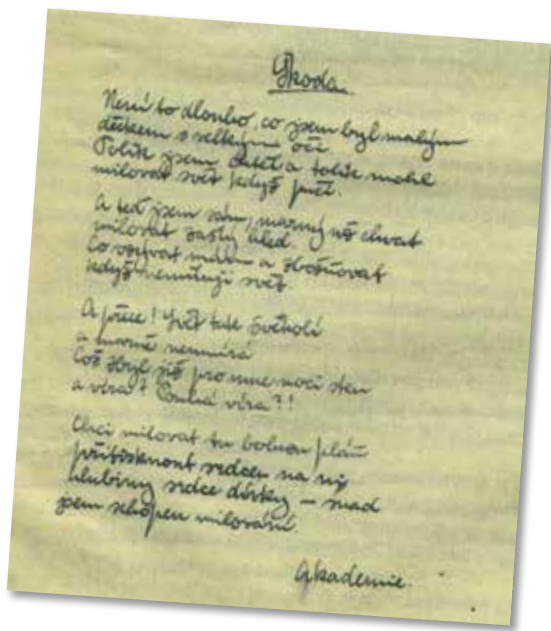 Škoda
Není to dlouho, co jsem byl malým
děckem s velkými oči.
Tolik jsem chtěl a tolik mohl
milovat svět když
A teď jsem sám, marný už chvat
milovat zašlý hled.
Co vzývat mám a zbožňovat
když nemiluji svět.
A přece! Svět tak švitoří
a marně neumírá
Což zbyl již pro mne noci sten
a víra? Pouhá víra?!
Chci milovat tu bolnou pláň
přitisknout srdcem na ní
hlubiny srdce dávky – snad
jsem schopen milování.
Akademie.